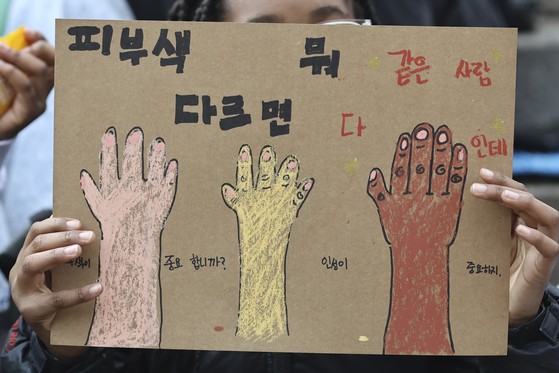 피부색
다르면
뭐
다
같은 사람
인데
중요 합니까?
인성이
중요하지.